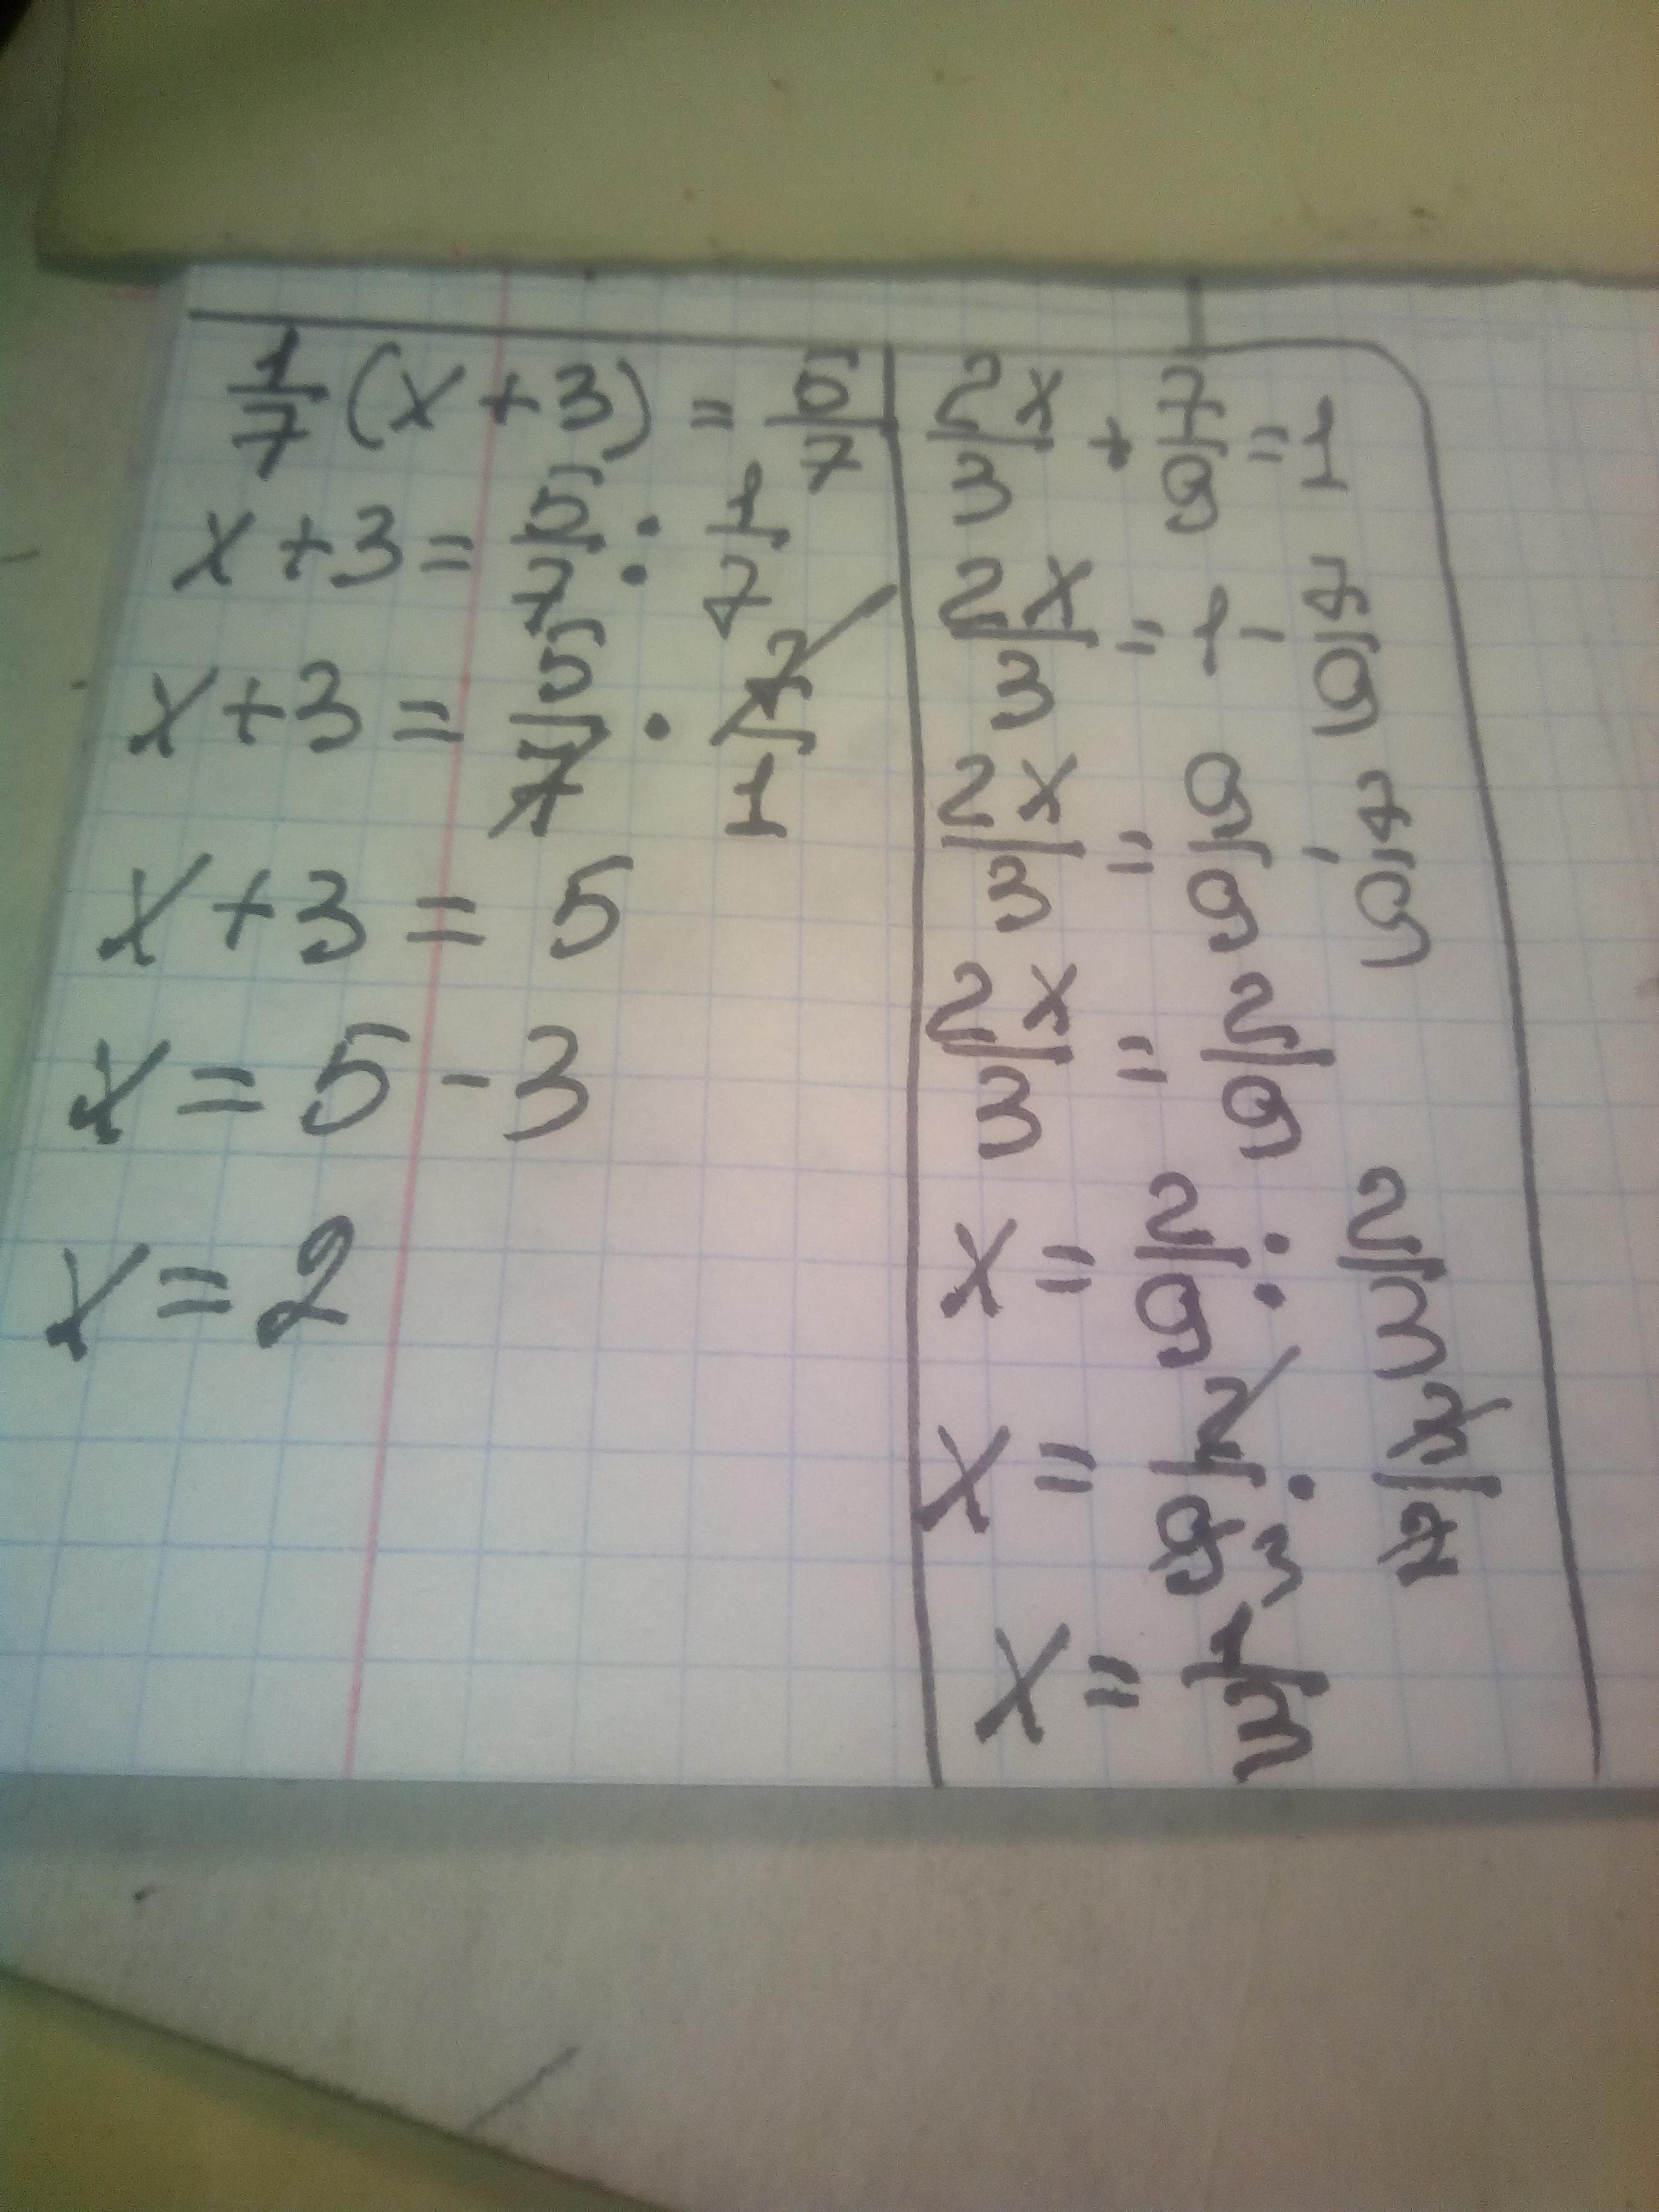 1/7 (x+3) = 5/7
x+3 = 5/7 : 1/7
x+3 = 5/7 · 7/1
x+3 = 5
x = 5-3
x = 2
2x/3 + 7/9 = 1
2x/3 = 1 - 7/9
2x/3 = 9/9 - 7/9
2x/3 = 2/9
x = 2/9 : 2/3
x = 2/9 3 · 3/2
x = 1/3